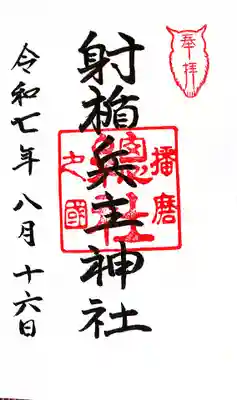 奉拝
播磨
總社
之國
射楯兵主神社
令和七年八月十六日